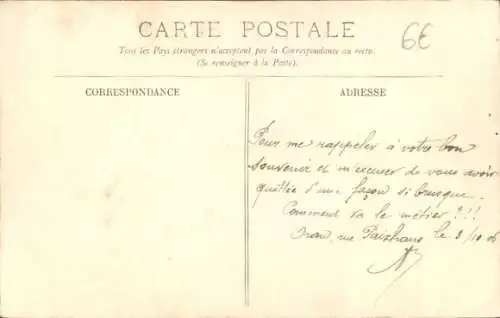 CARTE POSTALE
6€
Tous les Pays étrangers n'acceptent pas la Correspondance au recto.
(Se renseigner à la Poste).
CORRESPONDANCE
ADRESSE
Pour me rappeler à votre bon
souvenir et m'excuser de vous avoir
quittée d'une façon si brusque.
Comment va le métier ?!!
rue le 3/10 06